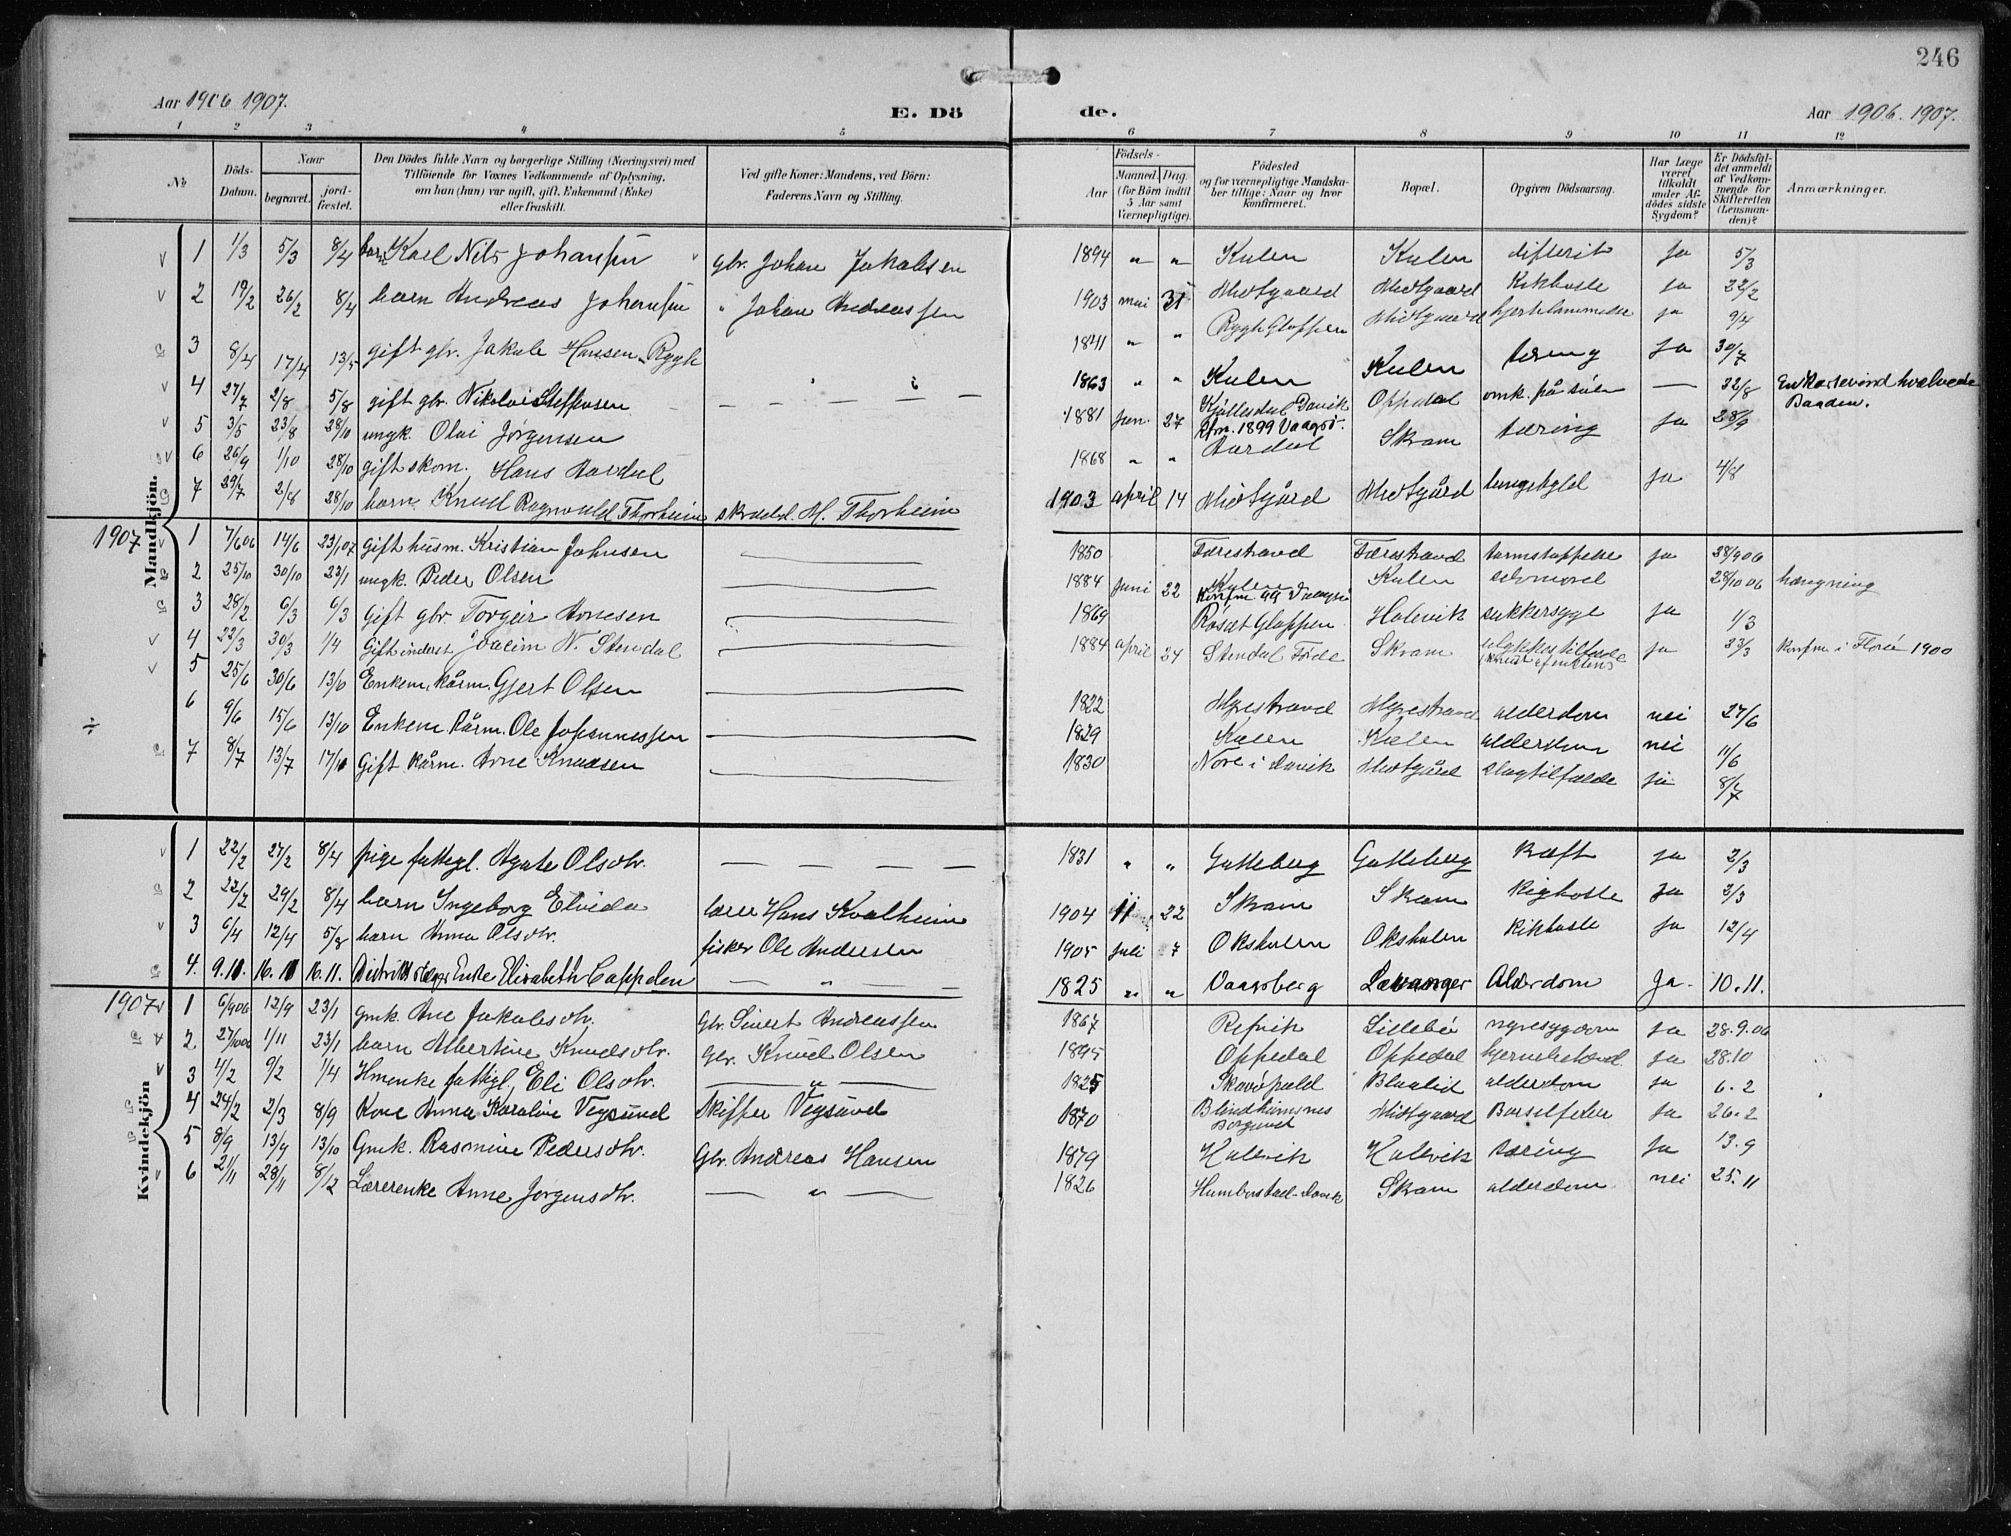 246
Aar 1906 1907.
E. Dö de.
Aar 1906. 1907.
1 2 3 4 5 6 7 8 9 10 11 12
No
Döds-Datum.
Naar
begravet.
jord-fæstet.
Den Dödes fulde Navn og borgerlige Stilling (Næringsvei) med Tilföiende for Voxnes Vedkommende af Oplysning, om han (hun) var ugift, gift, Enkemand (Enke) eller fraskilt.
Ved gifte Koner: Mandens, ved Börn: Faderens Navn og Stilling.
Födsels-
Aar
Maaned. Dag.
(for Börn indtil 5 Aar samt Værnepligtige).
Födested og for værnepligtige Mandskaber tillige: Naar og hvor konfirmeret.
Bopæl.
Opgiven Dödsaarsag.
Har Læge været tilkaldt under Afdödes sidste Sygdom?
Er Dödsfaldet anmeldt af Vedkommende for Skifteretten (Lensmanden)?
Anmærkninger.
Mandkjön.
1 1/3 5/3 8/4 barn Karl Nils Johansen gbr. Johan Jakobsen 1894 " " Kulen Kulen difterit ja 5/3
2 19/2 26/2 8/4 barn Andreas Johansen " Johan Andreassen 1903 mai 31 Midtgaard Midtgaard Kikhoste ja 22/2
3 8/4 17/4 13/5 gift gbr. Jakob Hansen Rygh 1841 " " Rygh Gloppen Midtgaard hjertelammelse ja 9/4
4 27/7 2/8 5/8 gift gbr. Nikolai Steffensen 1863 " " Kulen Kulen tæring ja 30/7
5 3/5 23/8 28/10 ungk. Olai Jørgensen 1881 jan. 27 Davik Kfm. 1899 Vaagsö. Oppdal omk. på søen — 22/8 En kastevind hvælvede Baaden.
6 26/9 1/10 28/10 gift skom. Hans Aardal 1868 " " Aardal Skram tæring ja 28/9
7 29/7 2/8 28/10 barn Knud Ragnvald Thorheim M. Thorheim 1903 april 14 Midtgård Midtgård lungebyld ja 4/8
1907
1 7/6 06 14/6 23/1 07 Gift husm. Kristian Johnsen 1850 Færestrand Færestrand tarmstoppelse ja 28/9 06
2 25/10 30/10 23/1 ungk. Peder Olsen 1884 juni 22 Kulen Konfm 99 Vaagsö Kulen selvmord 28/10 06 hængning
3 28/2 6/3 6/3 Gift gbr Torgeir Arnesen 1869 Røsæt Gloppen Holevik sukkersyge ja 1/3
4 22/3 30/3 1/4 Gift inderst Joacim N. Stendal 1884 april 24 Stendal Førde Skram ulykkestilfælde ja 23/3 Konfm. i Florö 1900
5 25/6 30/6 13/0 Enkem. kårm. Gjert Olsen 1822 Myrestrand Myrestrand alderdom nei 27/6
6 9/6 15/6 13/10 Enkem kårm. Ole Johannessen 1829 Kulen Kulen alderdom nei 11/6
7 8/7 13/7 17/10 Gift kårm. Arne Knudsen 1830 Nore i Davik Midtgård slagtilfælde ja 8/7
Kvindekjön
1 22/2 27/2 8/4 pige fattigl. Agate Olsdtr. — 1831 " " Gatteberg Gatteberg Kræft ja 2/3
2 22/2 29/2 8/4 barn Ingeborg Elvida lærer Hans Kvalheim 1904 11 22 Skram Skram Kighoste ja 2/3
3 6/4 12/4 5/8 barn Anna Olsdtr. fisker Ole Andersen 1905 juli 7 Oksholen Oksholen Kikhoste ja 12/4
4. 9.11. 16.11 16.11. Distriktslæge Enke Elisabeth Cappelen — " — 1825 " " Vaagsberg Levanger Alderdom Ja. 10.11.
1907
1 6/9 06 12/9 23/1 gmk. Ane Jakobsdtr. Gbr. Sivert Andreassen 1867 Refvik Lillebö nyresygdom ja 28.9.06
2. 27/10 06 1/11 23/1 barn Albertine Knudsdtr. Gbr. Knud Olsen 1895 Oppedal Oppedal ja 28.10
3 4/2 9/2 1/4 Hmenke fattigl. Eli Olsdtr. — " — 1825 Blaalid alderdom ja 6.2
4 24/2 2/3 8/9 Kone Anna Karoline Vegsund Skipper Vegsund 1870 Blindheimsnes Borgund Midtgaard Barselfeber ja 26.2
5 8/9 13/9 13/10 Gmk. Rasmine Pedersdtr. Gbr. Andreas Hansen 1879 Holevik Holevik tæring ja 13.9
6 2/11 28/11 8/12 Lærerenke Anne Jørgensdtr. — " — 1826 Humborstad-Davik Skram alderdom nei 25.11